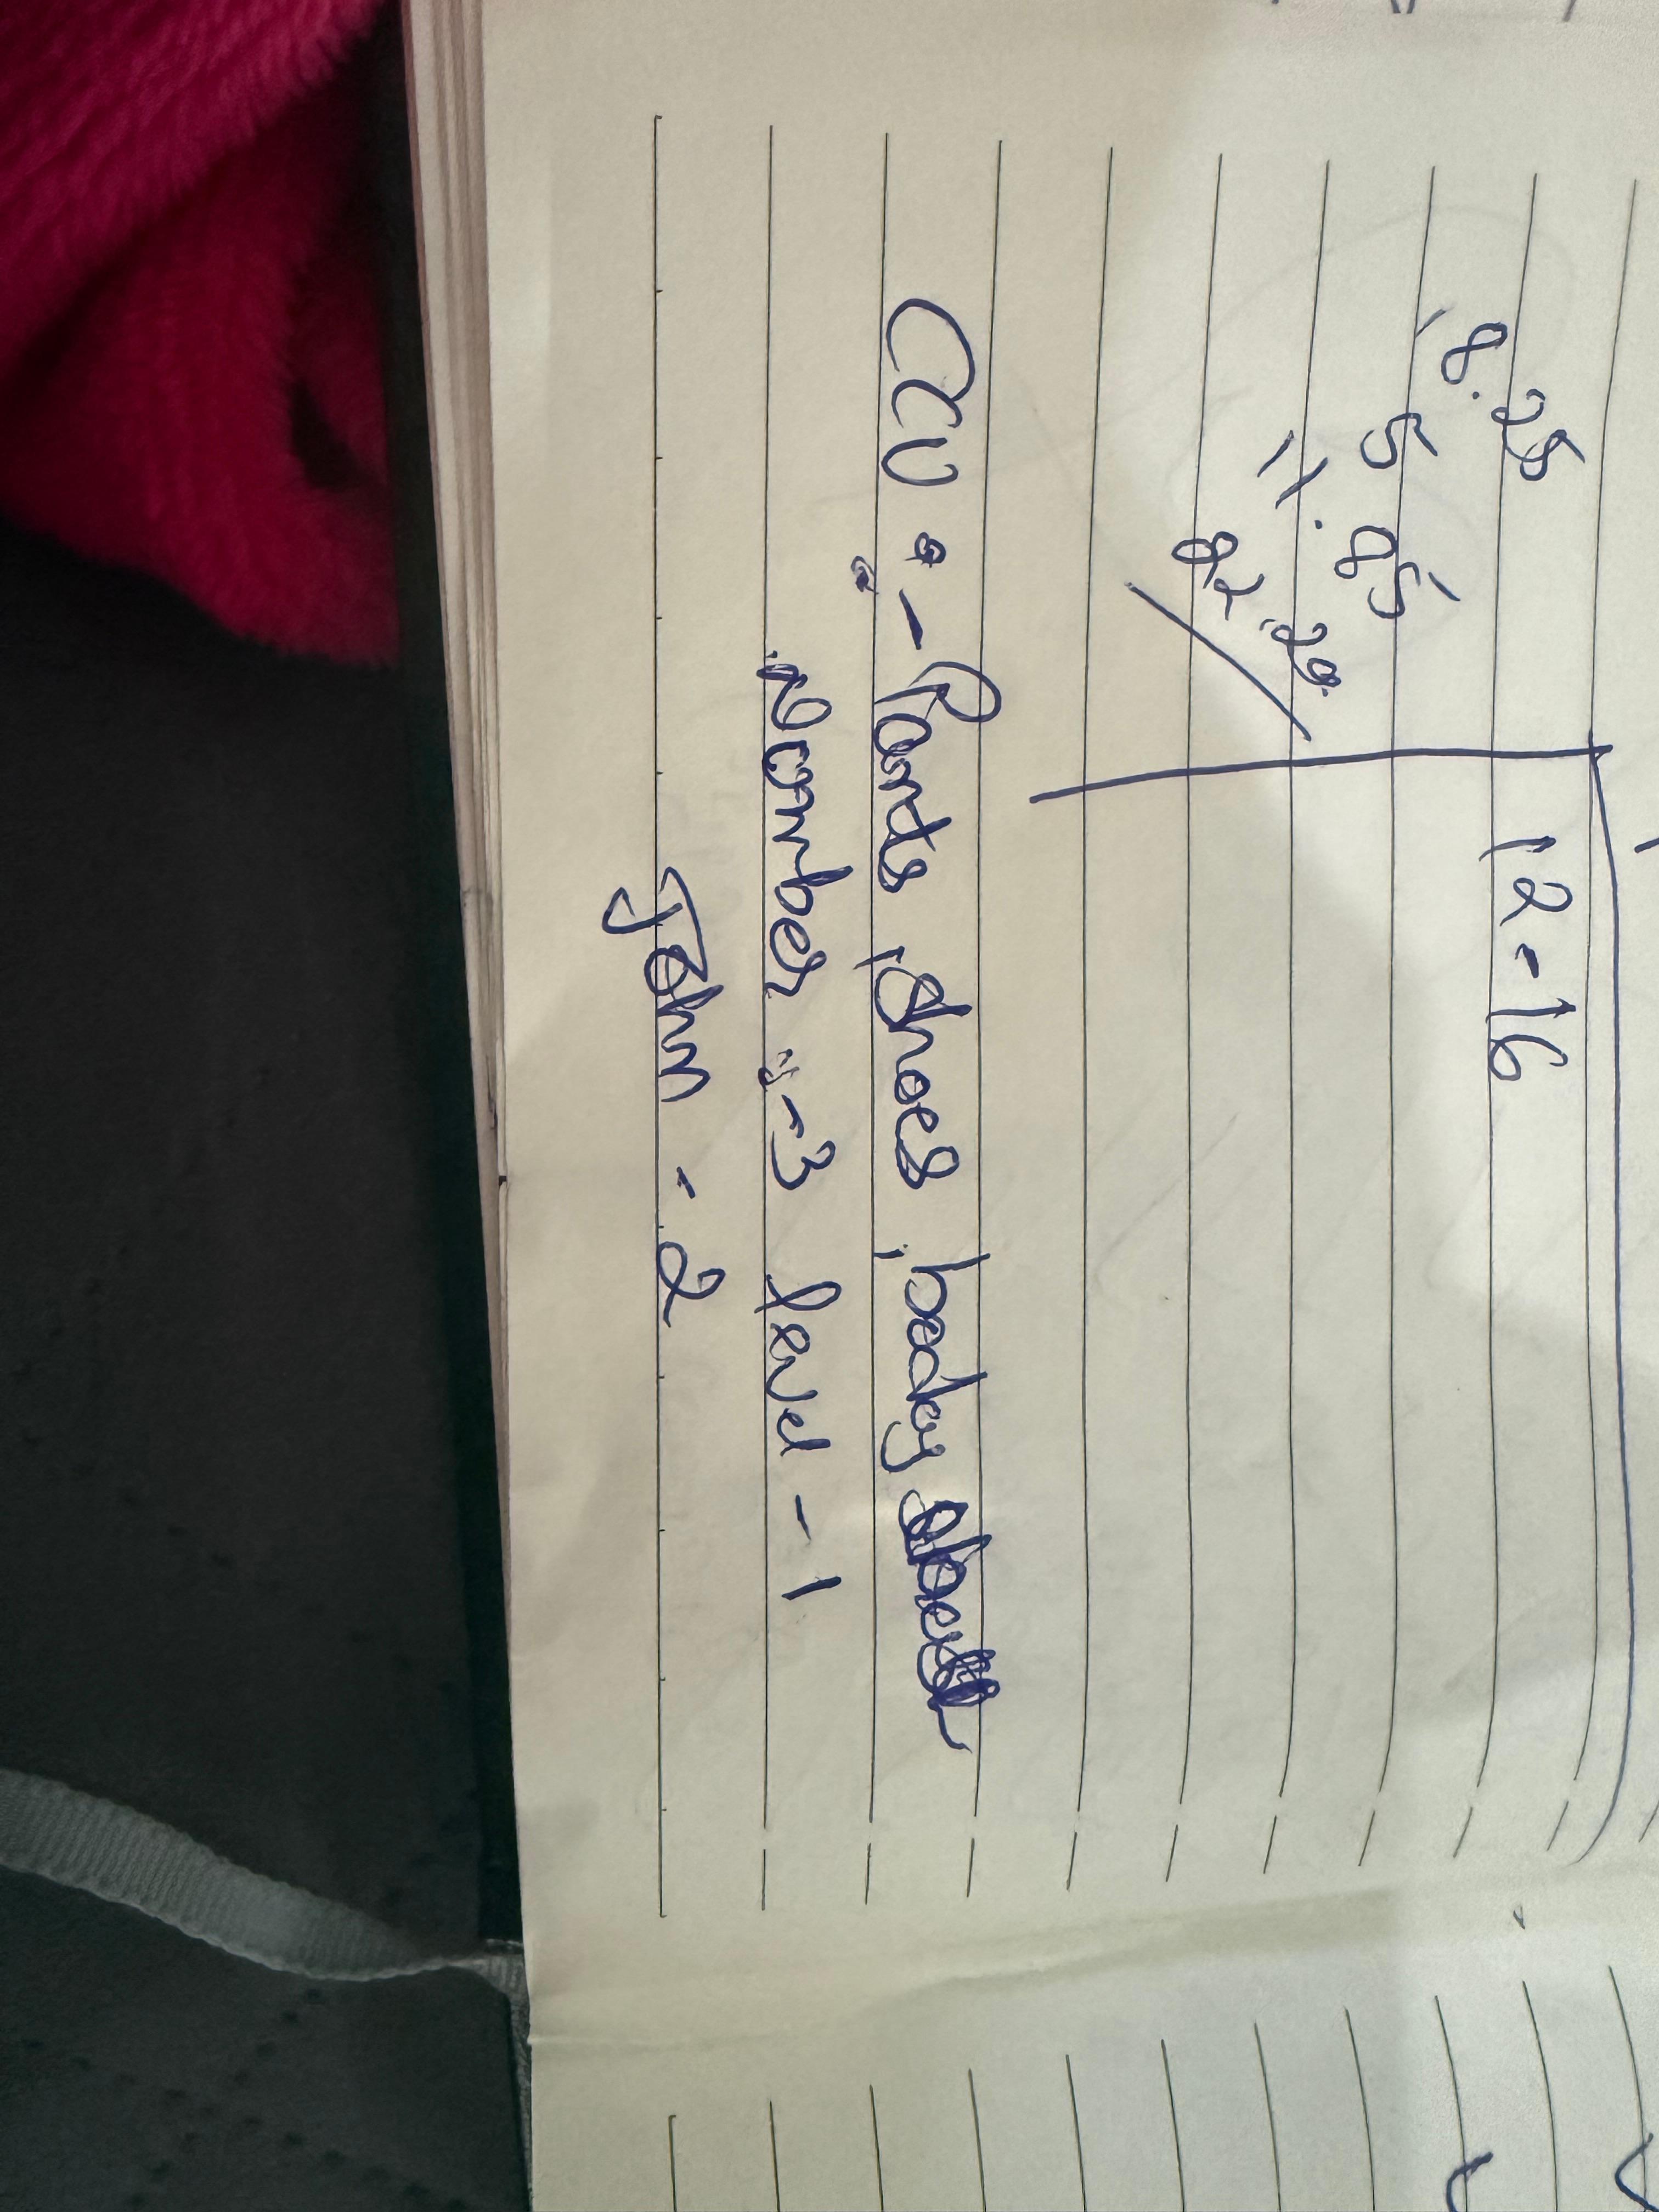 18.25
5
11.95
82.29
12-16
CCU :- Pants, shoes, boday
Number :-3 level -1
John - 2